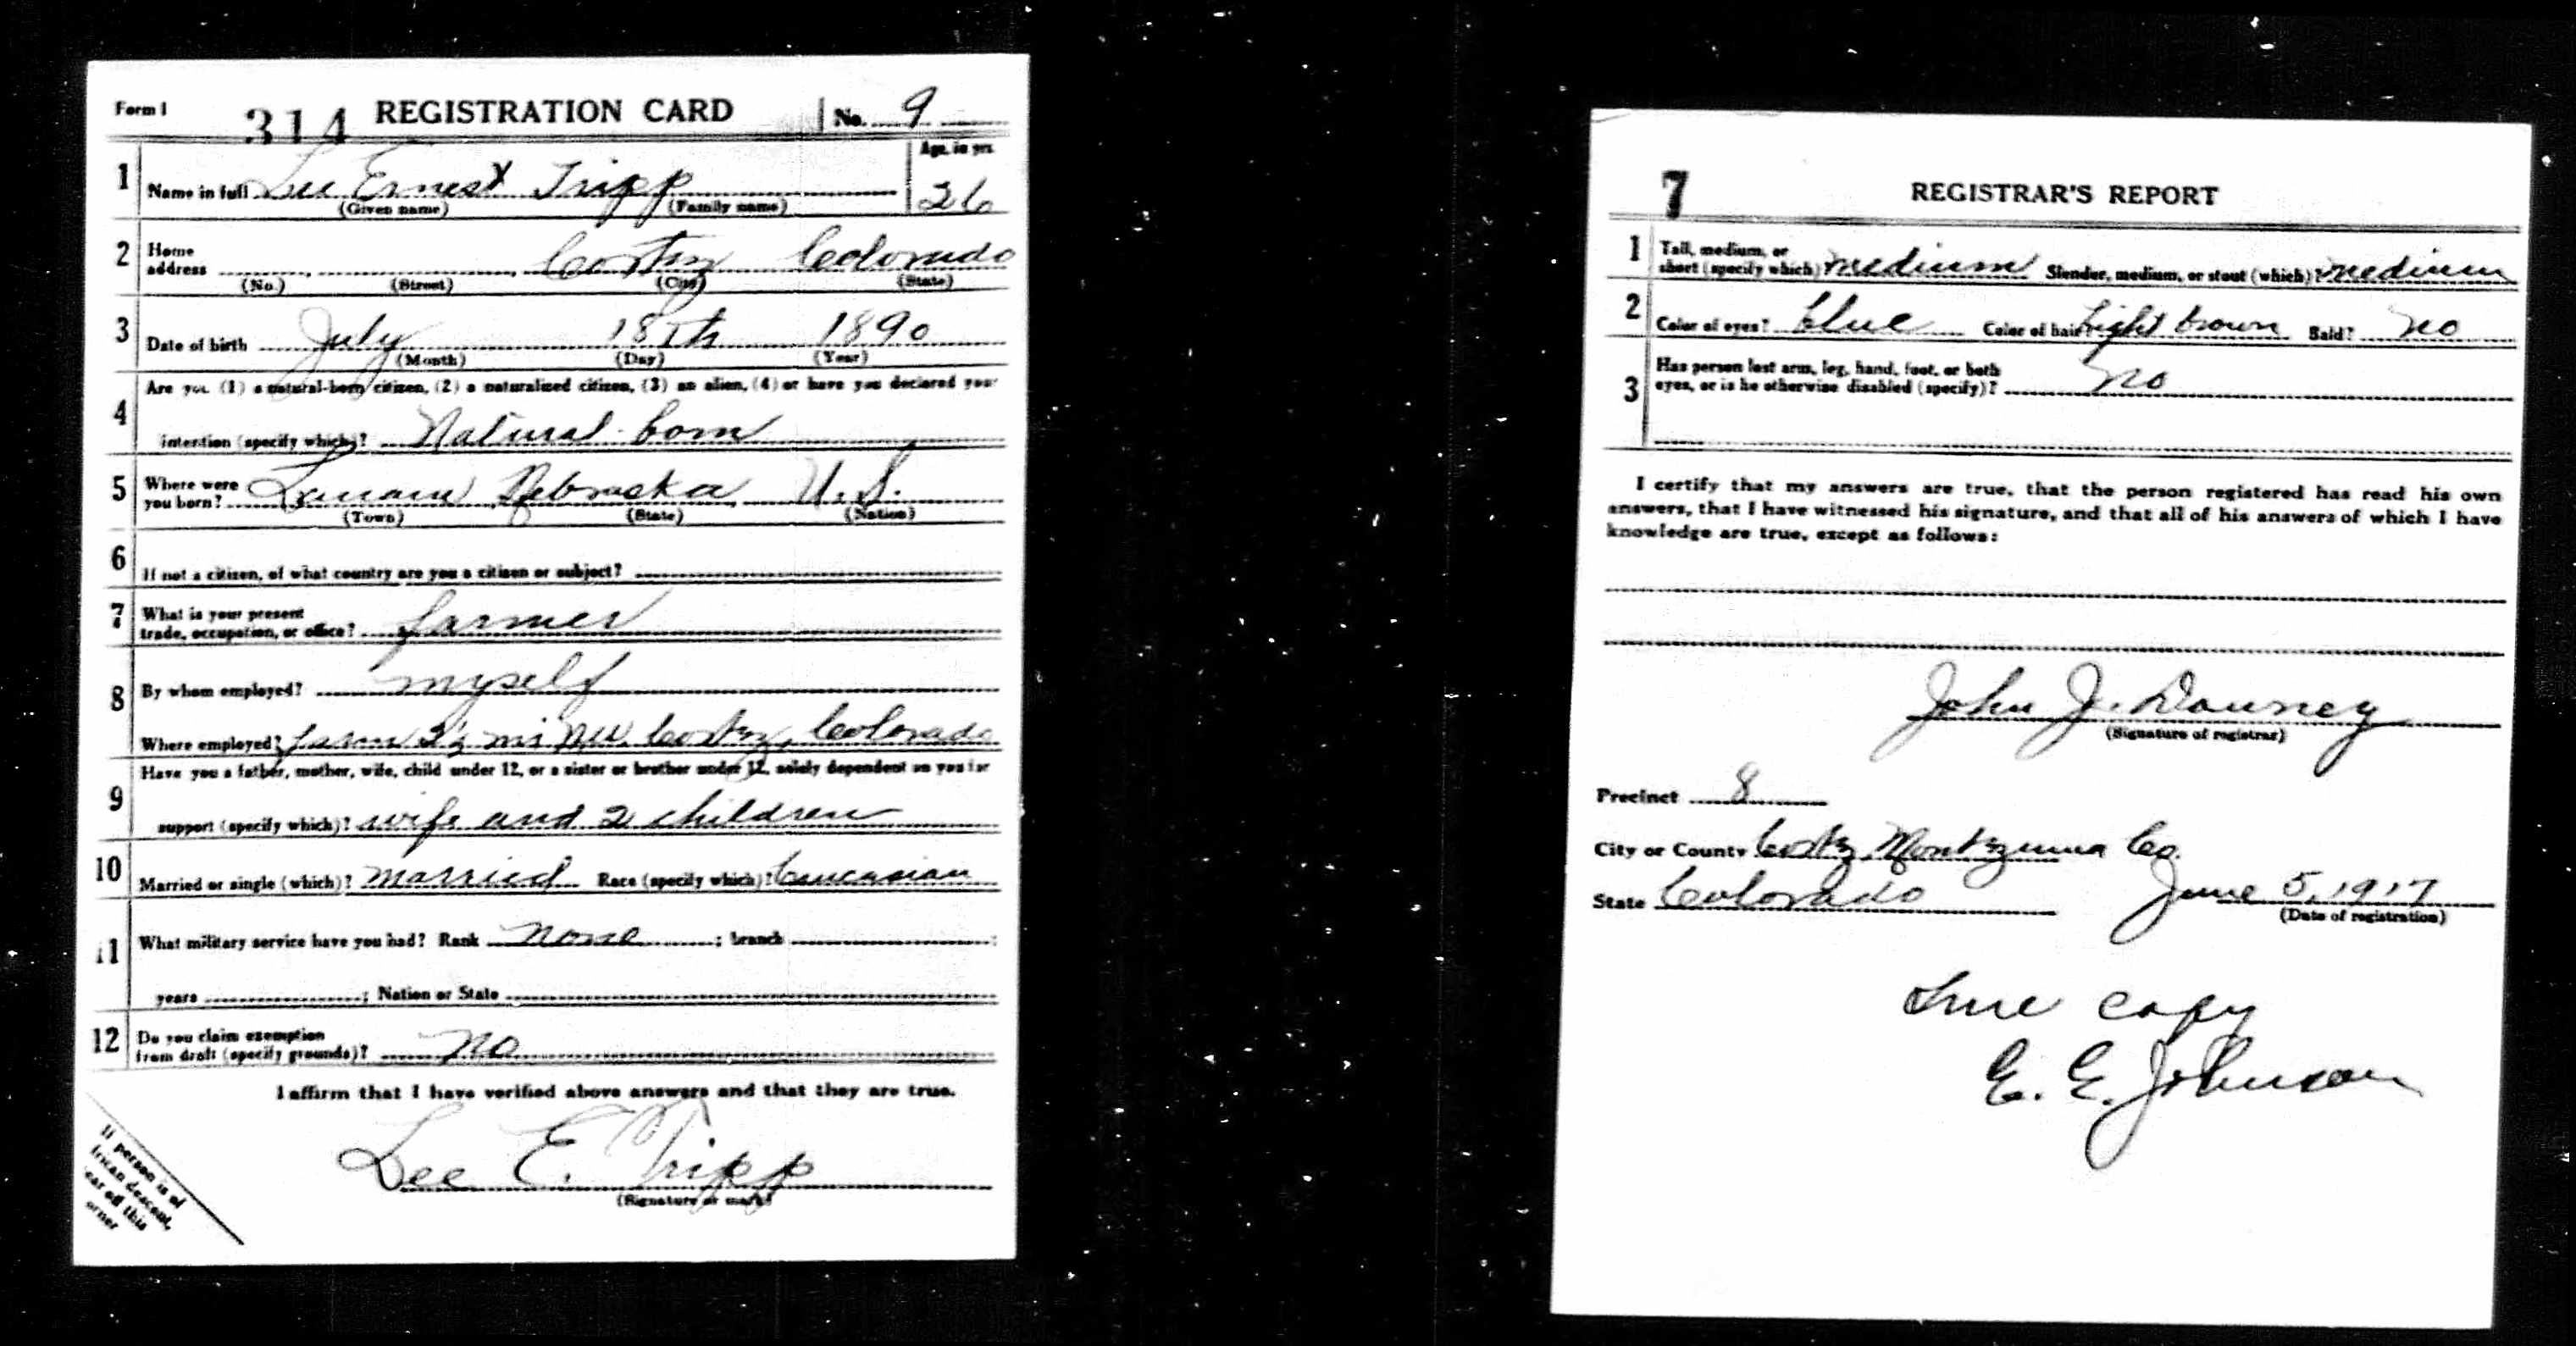 Form 1 314 REGISTRATION CARD No. 9
Age, in yrs.
1 Name in full Lee Ernest Tripp 26
(Given name) (Family name)
2 Home address Cortez Colorado
(No.) (Street) (City) (State)
3 Date of birth July 18th 1890
(Month) (Day) (Year)
Are you (1) a natural-born citizen, (2) a naturalized citizen, (3) an alien, (4) or have you declared your
4 intention (specify which)? Natural born
5 Where were you born? Nebraska U.S.
(Town) (State) (Nation)
6 If not a citizen, of what country are you a citizen or subject?
7 What is your present trade, occupation, or office? farmer
8 By whom employed? myself
Where employed? farm mi Cortez, Colorado
Have you a father, mother, wife, child under 12, or a sister or brother under 12, solely dependent on you for
9 support (specify which)? wife and 2 children
10 Married or single (which)? married Race (specify which)? Caucasian
11 What military service have you had? Rank none ; branch ;
years ; Nation or State
12 Do you claim exemption from draft (specify grounds)? no
I affirm that I have verified above answers and that they are true.
Lee E. Tripp
(Signature or mark)
If person is of
frican descent,
ear off this
orner
7 REGISTRAR'S REPORT
1 Tall, medium, or short (specify which)? medium Slender, medium, or stout (which)? medium
2 Color of eyes? blue Color of hair? light brown Bald? no
3 Has person lost arm, leg, hand, foot, or both eyes, or is he otherwise disabled (specify)? no
I certify that my answers are true, that the person registered has read his own
answers, that I have witnessed his signature, and that all of his answers of which I have
knowledge are true, except as follows:
John J. Downey
(Signature of registrar)
Precinct 8
City or County Cortez Montezuma Co.
State Colorado June 5, 1917
(Date of registration)
True copy
E. E. Johnson